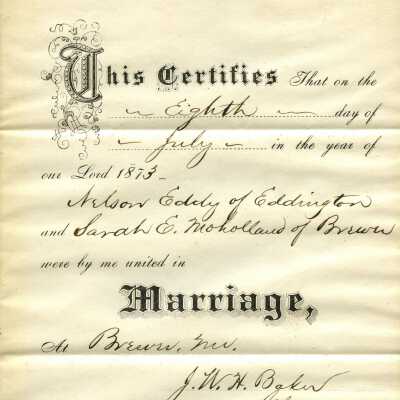 This Certifies That on the
Eighth day of
July in the year of
our Lord 1873
Nelson Eddy of Eddington
and Sarah E. Moholland of Brewer
were by me united in
Marriage,
At Brewer, Me.
J. W. H. Baker